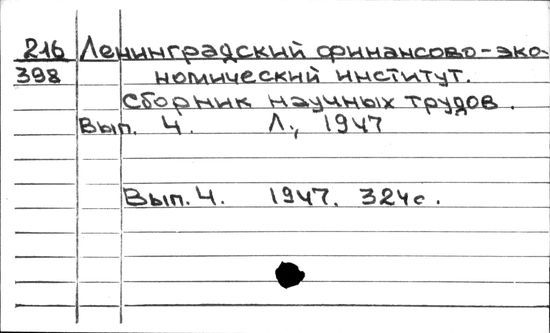 216 Ленинградский финансово-эко-
398 номический институт.
Сборник научных трудов.
Вып. 4. Л., 1947
Вып. 4. 1947. 324с.